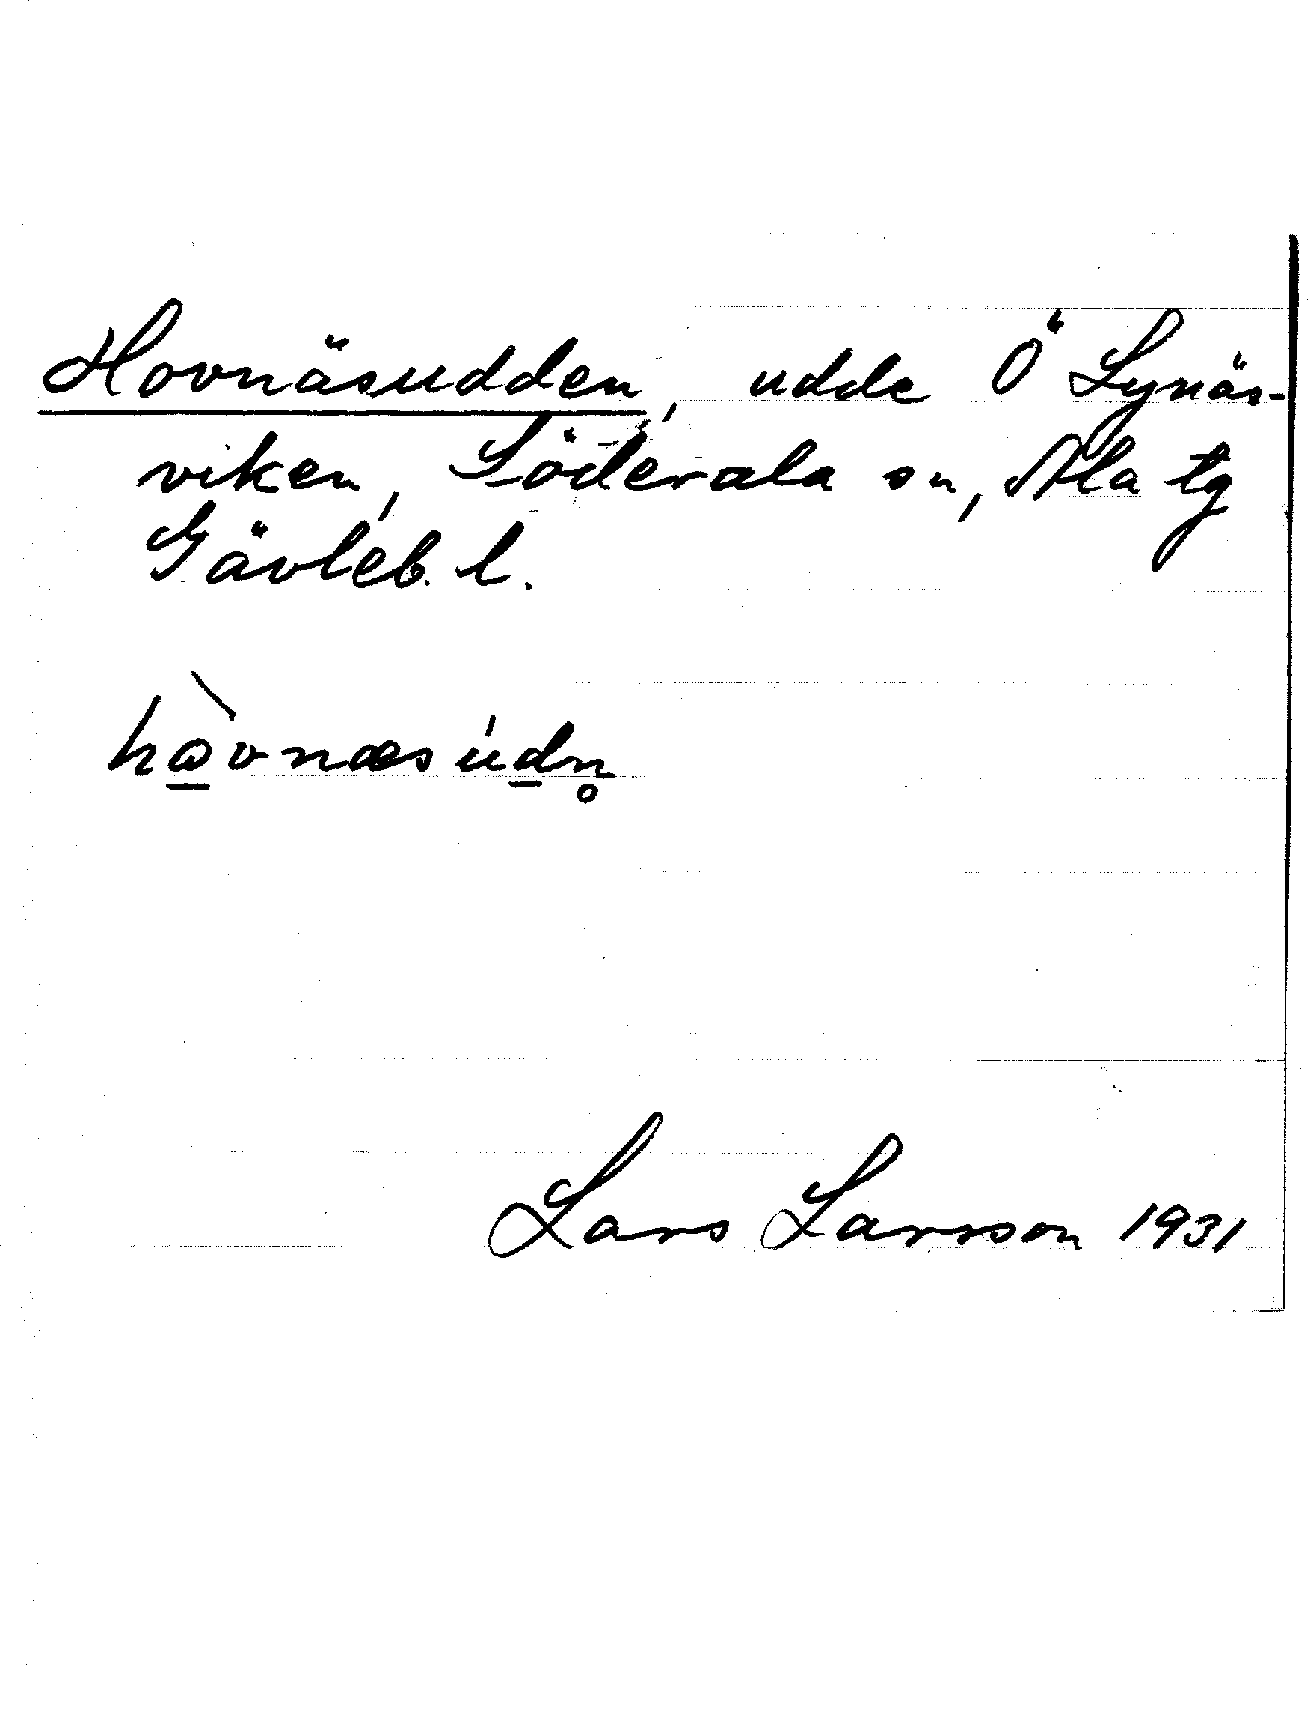 Hovnäsudden, udde Ö Lynäs-
viken, Söderala sn, Ala tg
Gävleb. l.
hòvnæsúdn̥
Lars Larsson 1931